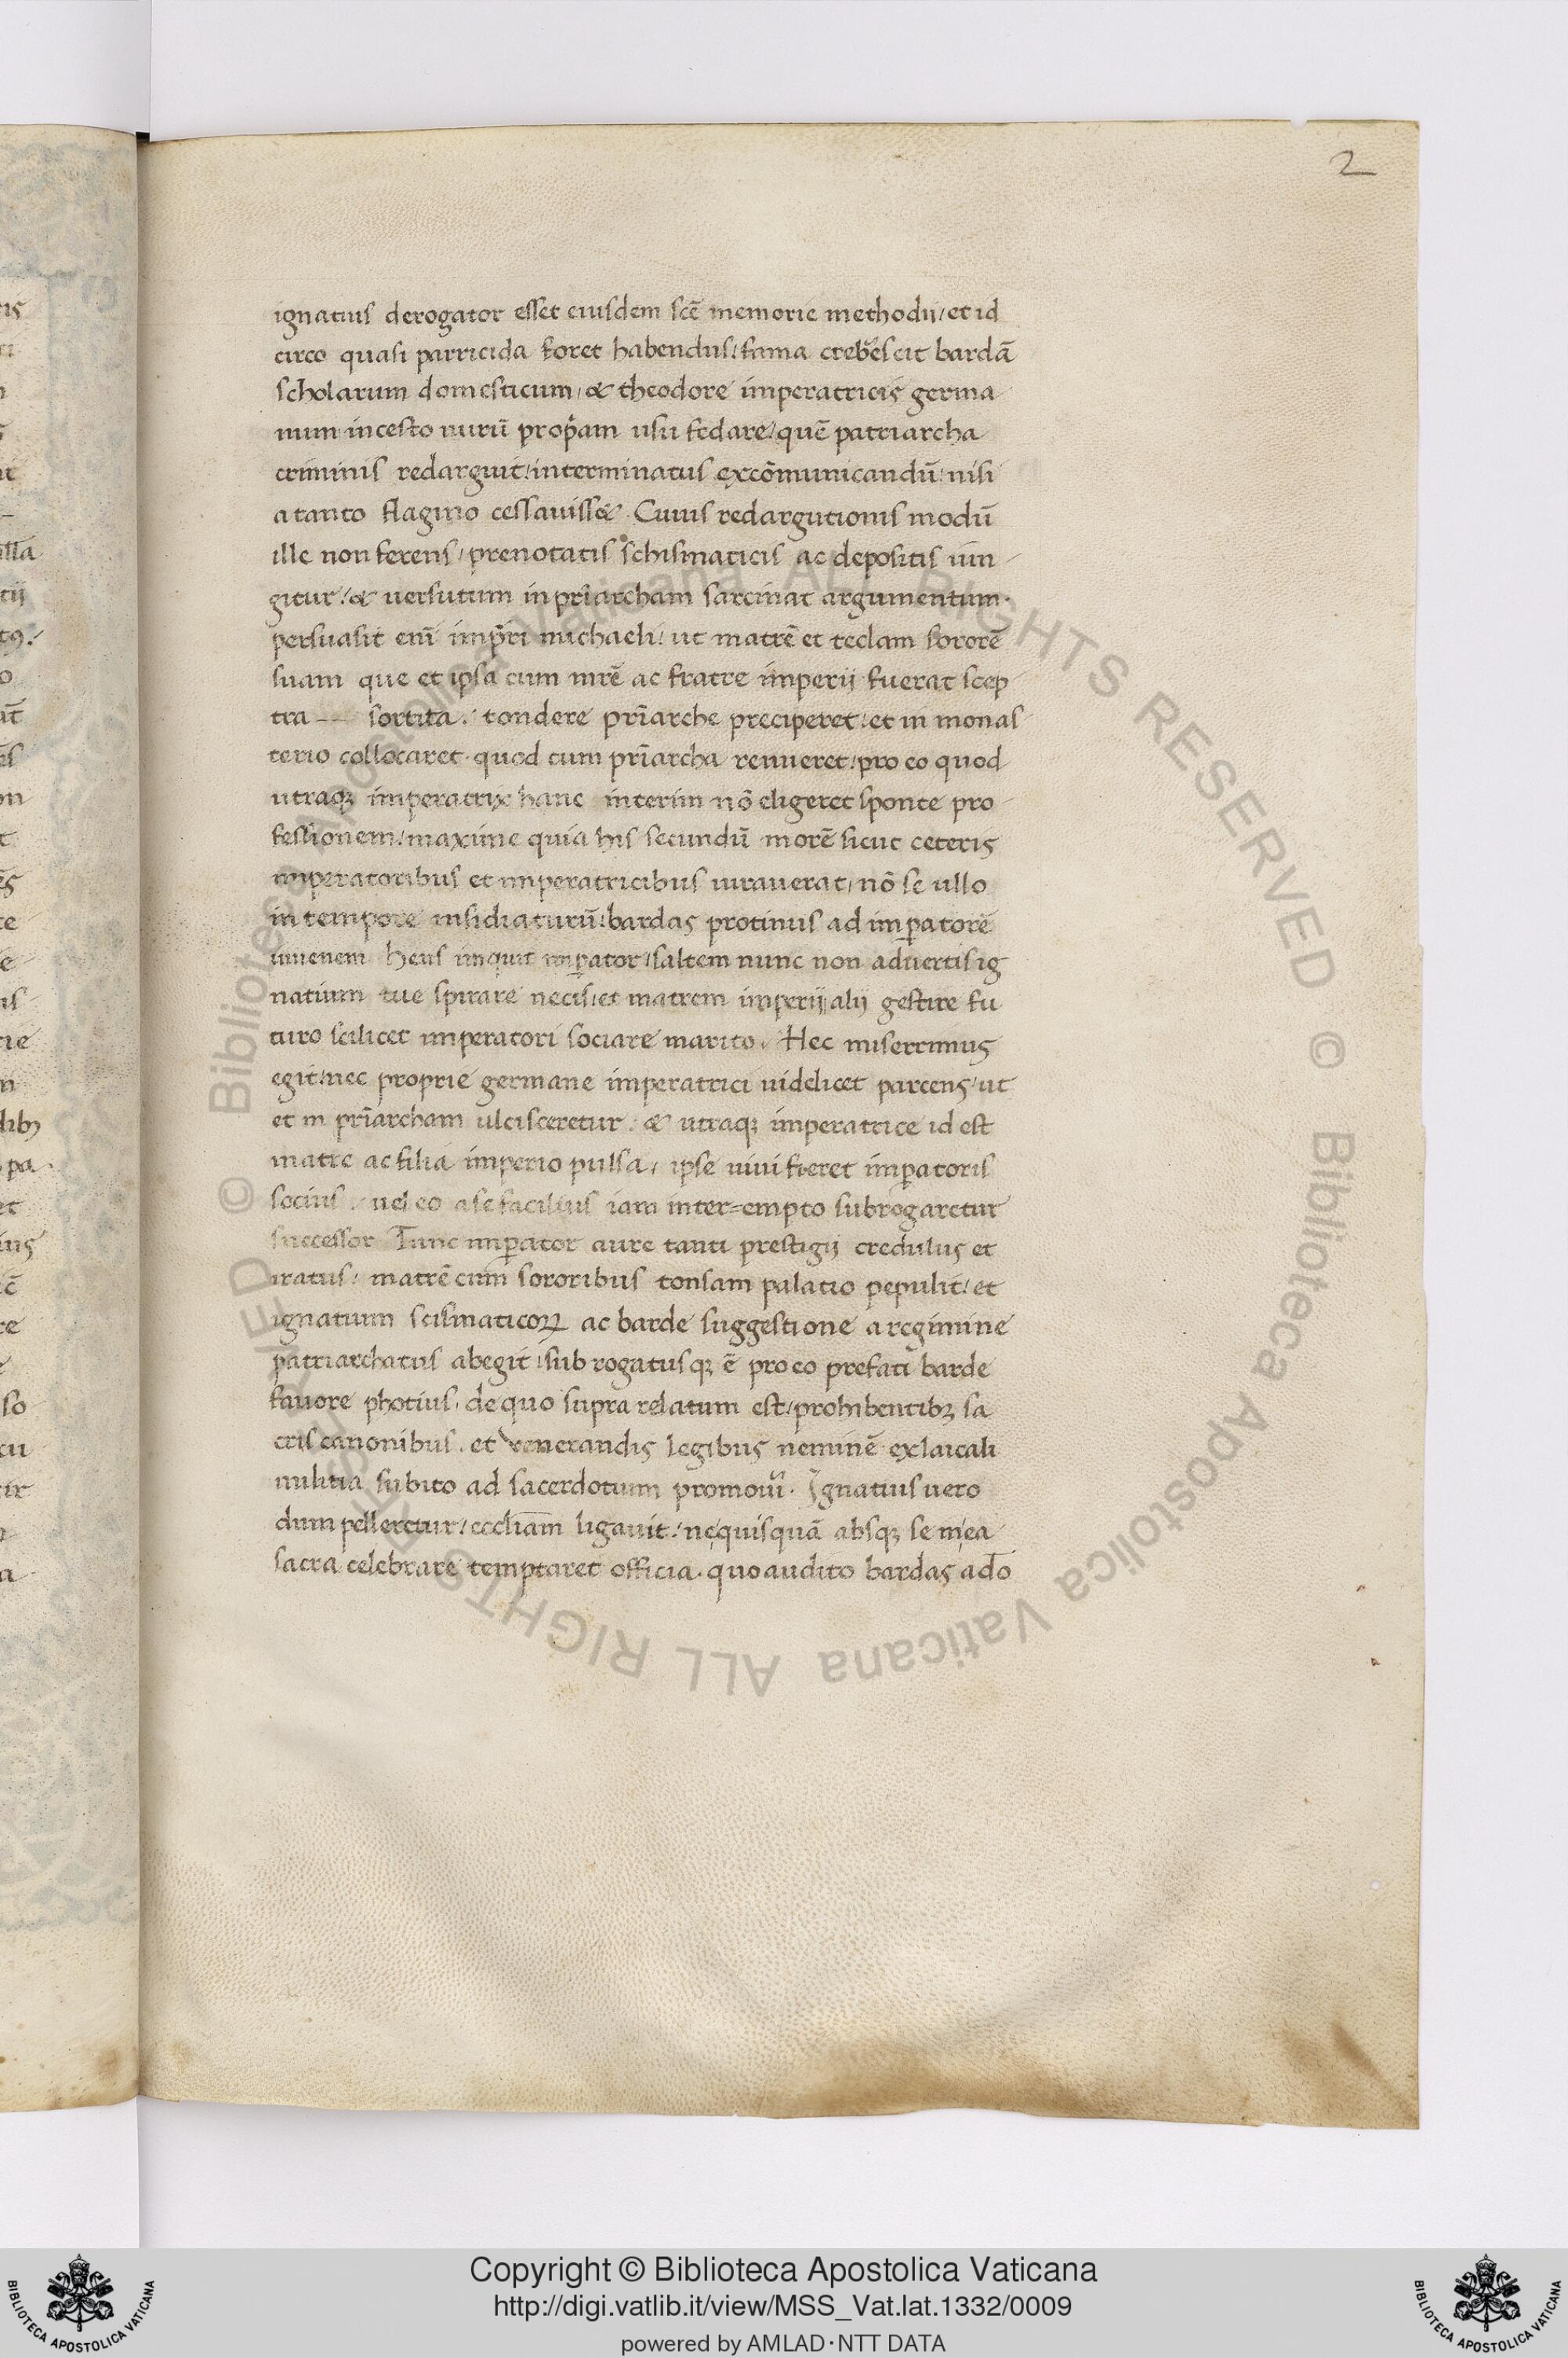 2
ignatius derogator esset eiusdem scē memorie methodii / et id
circo quasi parricida foret habendus / fama crebrescit bardā
scholarum domesticum, & theodore imperatricis germa
num incesto nurū propam usu fedare / quē patriarcha
criminis redarguit / interminatus excōmunicandū / nisi
a tanto flagitio cessavisset. Cuius redargutionis modū
ille non ferens / prenotatis schismaticis ac depositis iun
gitur / & versutum in prīarcham sarcinat argumentum.
persuasit enī impri michaeli / ut matrē et teclam sororē
suam que et ipsa cum mrē ac fratre imperii fuerat scep
tra -- sortita / tondere prīarche preciperet / et in monas
terio collocaret. quod cum prīarcha renueret / pro eo quod
utraqꝫ imperatrix hanc interim nō eligeret sponte pro
fessionem / maxime quia his secundū morē sicut ceteris
imperatoribus et imperatricibus iuraverat / nō se ullo
in tempore insidiaturū / bardas protinus ad imꝑatorē
iuvenem heus inquit imꝑator / saltem nunc non advertis ig
natium tue spirare necis / et matrem imperii alii gestire fu
turo scilicet imperatori sociare marito. Hec miserrimus
egit / nec proprie germane imperatrici videlicet parcens / ut
et in prīarcham ulcisceretur / & utraqꝫ imperatrice id est
matre ac filia imperio pulsa / ipse uiui fieret imꝑatoris
socius / vel eo a se facilius iam inter=empto subrogaretur
successor Tunc imꝑator aure tanti prestigii credulus et
iratus / matrē cum sororibus tonsam palatio pepulit / et
ignatium scismaticoꝝ ac barde suggestione a regimine
patriarchatus abegit / sub rogatusqꝫ ē pro eo prefati barde
favore photius, de quo supra relatum est / prohibentibꝫ sa
cris canonibus. et venerandis legibus neminē ex laicali
militia subito ad sacerdotium promoui. Ignatius vero
dum pelleretur / ecclīam ligavit / ne quisquā absqꝫ se in ea
sacra celebrare temptaret officia. quo audito bardas ado
Copyright © Biblioteca Apostolica Vaticana
http://digi.vatlib.it/view/MSS_Vat.lat.1332/0009
powered by AMLAD·NTT DATA